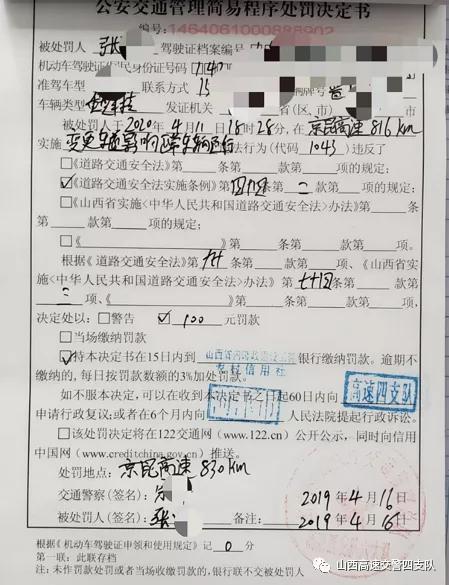 公安交通管理简易程序处罚决定书
编号:1464061000888902
被处罚人 张 驾驶证档案编号
机动车驾驶证 民身份证号码
准驾车型 联系方式 15
车辆类型 发证机关 省(区、市) 市
被处罚人于2020年4月11日18时28分,在京昆高速816km
实施变更车道影响 法行为(代码1043)违反了
□《道路交通安全法》第 条第 款第 项的规定;
☑《道路交通安全法实施条例》第四十四条第二款第 项的规定;
□《山西省实施<中华人民共和国道路交通安全法>办法》第 条
第 款第 项的规定;
□《 》第 条第 款第 项的规定。
根据《道路交通安全法》第九十条第 款第 项、《山西省实
施<中华人民共和国道路交通安全法>办法》第七十四条第 款第
二项、《 》第 条第 款第 项,
决定处以:□警告 ☑ 100 元罚款
□当场缴纳罚款
☑持本决定书在15日内到 银行缴纳罚款。逾期不
信用社
缴纳的,每日按罚款数额的3%加处罚款。
如不服本决定,可以在收到本决定书之日起60日内向 高速四支队
申请行政复议;或者在6个月内向 人民法院提起行政诉讼。
□该处罚决定将在122交通网(www.122.cn)公开公示,同时向信用
中国网(www.creditchina.gov.cn)推送。
处罚地点:京昆高速830km
交通警察(签名): 2019年4月16日
被处罚人(签名):张 备注: 2019年4月16日
根据《机动车驾驶证申领和使用规定》记 0 分
第一联:此联存档
注:未作罚款处罚或者当场收缴罚款的,银行联不交被处罚人
山西高速交警四支队